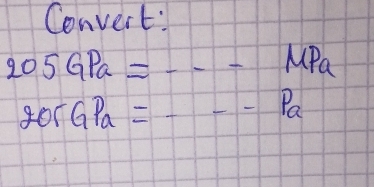 Convert:
205 GPa = - - - MPa
205 GPa = - - - Pa